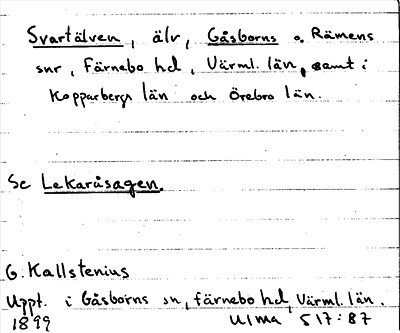 Svartälven, älv, Gåsborns o. Rämens
snr, Färnebo hd, Värml. län, samt i
Kopparbergs län och Örebro län.
Se Lekaråsagen.
G. Kallstenius
Uppt. i Gåsborns sn, färnebo hd, Värml. län.
1899 ULMA 517:87